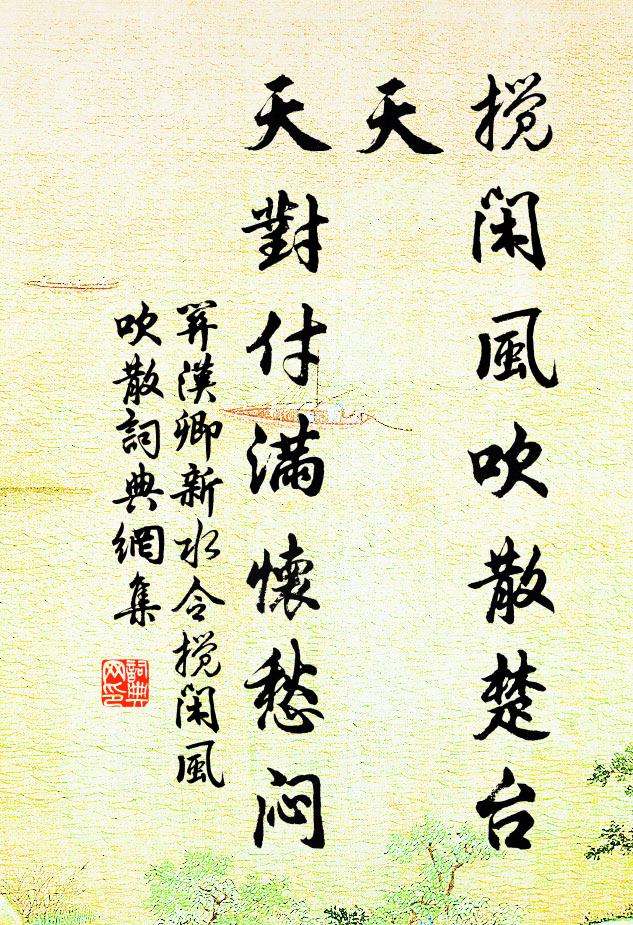 搅闲風吹散楚台
天
天對付满懷愁闷
関漢卿新水令搅闲風
吹散詞典網集
詞典网印